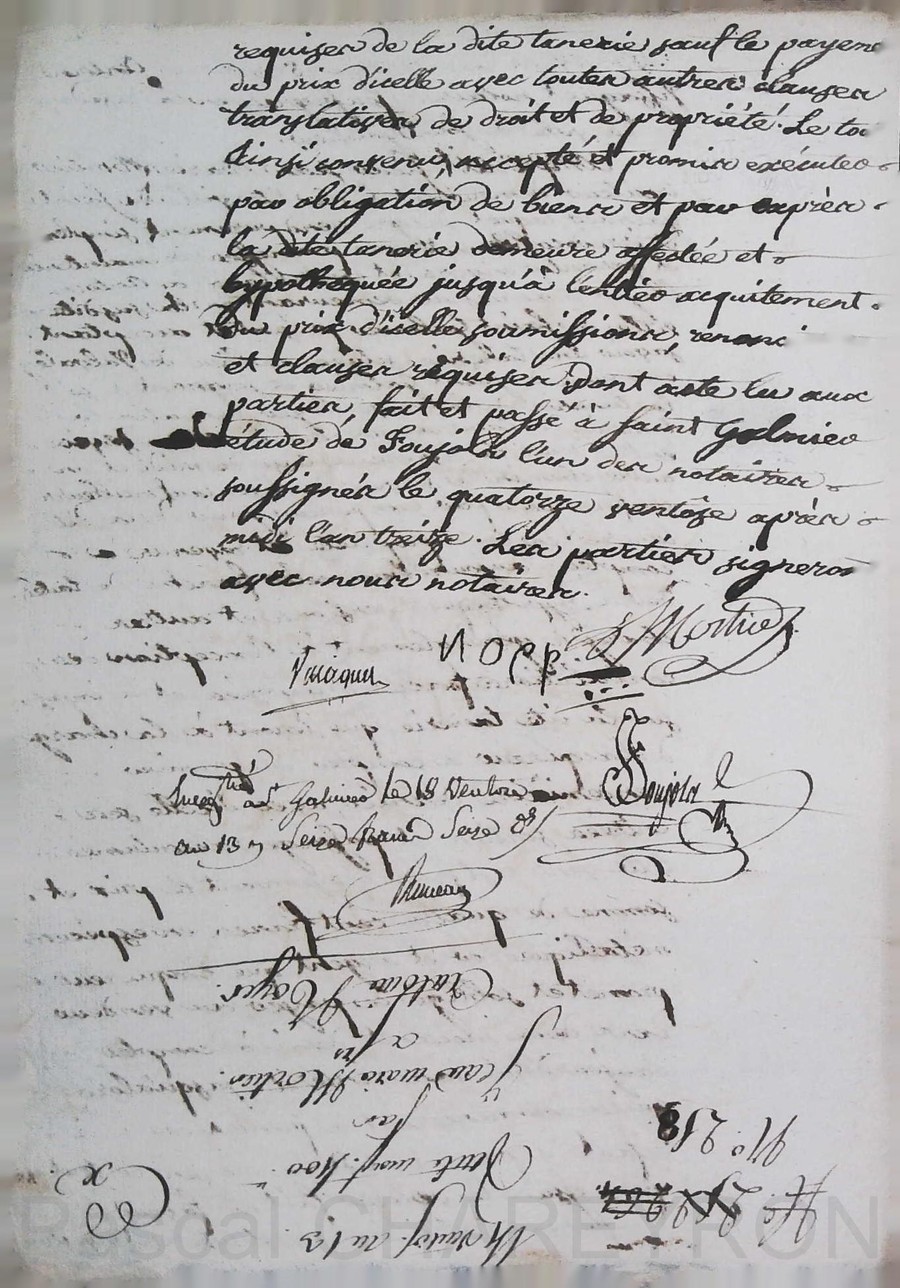 requises de la dite tanerie sauf le payeme
du prix d'icelle avec toutes autres clauses
translatives de droit et de propriété. Le tou
Ainsi convenu, accepté et promis exécuter
par obligation de biens et par exprès
la dite tanerie demeure affectée et
hypothéquée jusqu'à l'entier acquitement
Du prix d'icelle soumissions, renonci
et clauses réquises. Dont acte lu aux
parties, fait et passé à Saint Galmier
étude de Foujols l'un des notaires
soussignés le quatorze ventôse après
midi l'an treize. Les parties signeron
avec nous notaires.
Mortier
Foujols
à St Galmier le 18 Ventose
an 13
Antoine
à fs
Jean marc Mortier
Par
Vente
N° 218
du 14 an 13
Pascal CHAREYRON